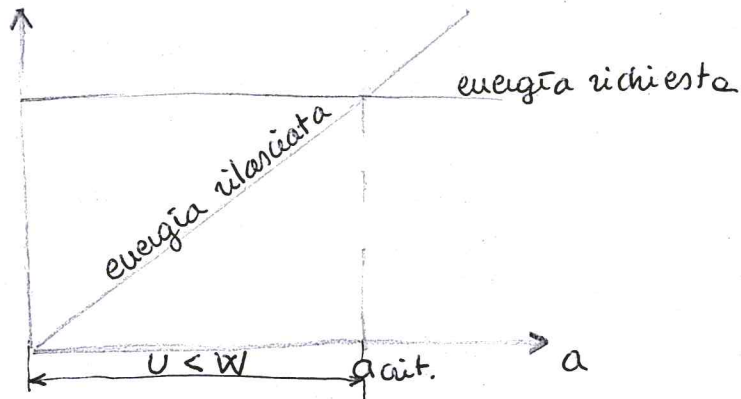 energia richiesta
energia rilasciata
U < W
a crit.
a